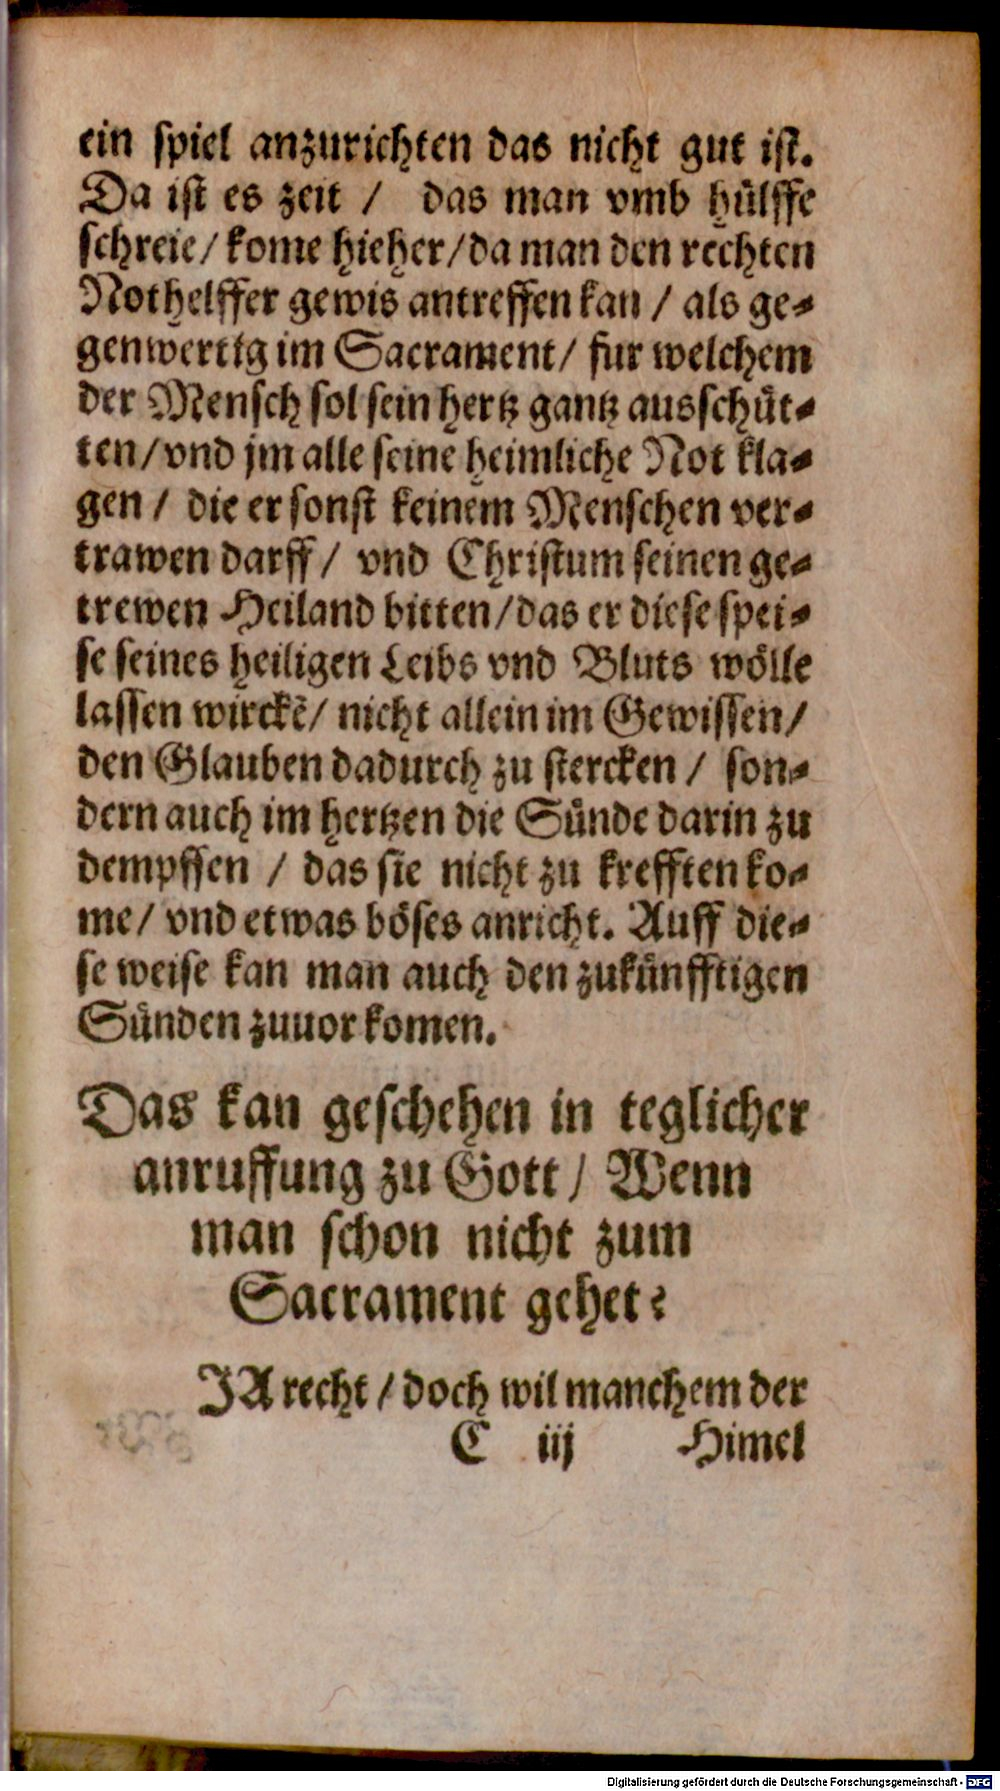 ein spiel anzurichten das nicht gut ist.
Da ist es zeit / das man vmb hülffe
schreie / kome hieher / da man den rechten
Nothelffer gewis antreffen kan / als ge-
genwertig im Sacrament / fur welchem
der Mensch sol sein hertz gantz ausschüt-
ten / vnd jm alle seine heimliche Not kla-
gen / die er sonst keinem Menschen ver-
trawen darff / vnd Christum seinen ge-
trewen Heiland bitten / das er diese spei-
se seines heiligen Leibs vnd Bluts wölle
lassen wirckẽ / nicht allein im Gewissen /
den Glauben dadurch zu stercken / son-
dern auch im hertzen die Sünde darin zu
dempffen / das sie nicht zu krefften ko-
me / vnd etwas böses anricht. Auff die-
se weise kan man auch den zukünfftigen
Sünden zuuor komen.
Das kan geschehen in teglicher
anruffung zu Gott / Wenn
man schon nicht zum
Sacrament gehet?
JA recht / doch wil manchem der
C iij Himel
Digitalisierung gefördert durch die Deutsche Forschungsgemeinschaft - DFG